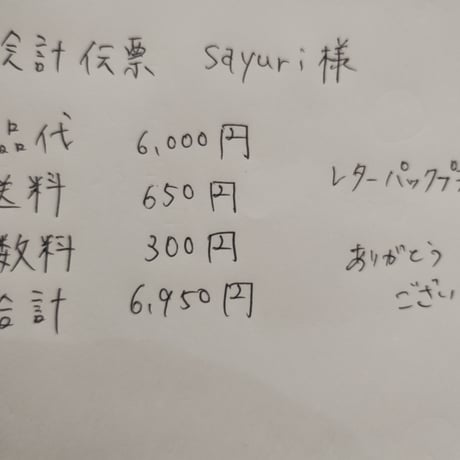 会計伝票 sayuri様
品代 6,000円
送料 650円 レターパックプ
数料 300円
ありがとう
合計 6,950円
ござい